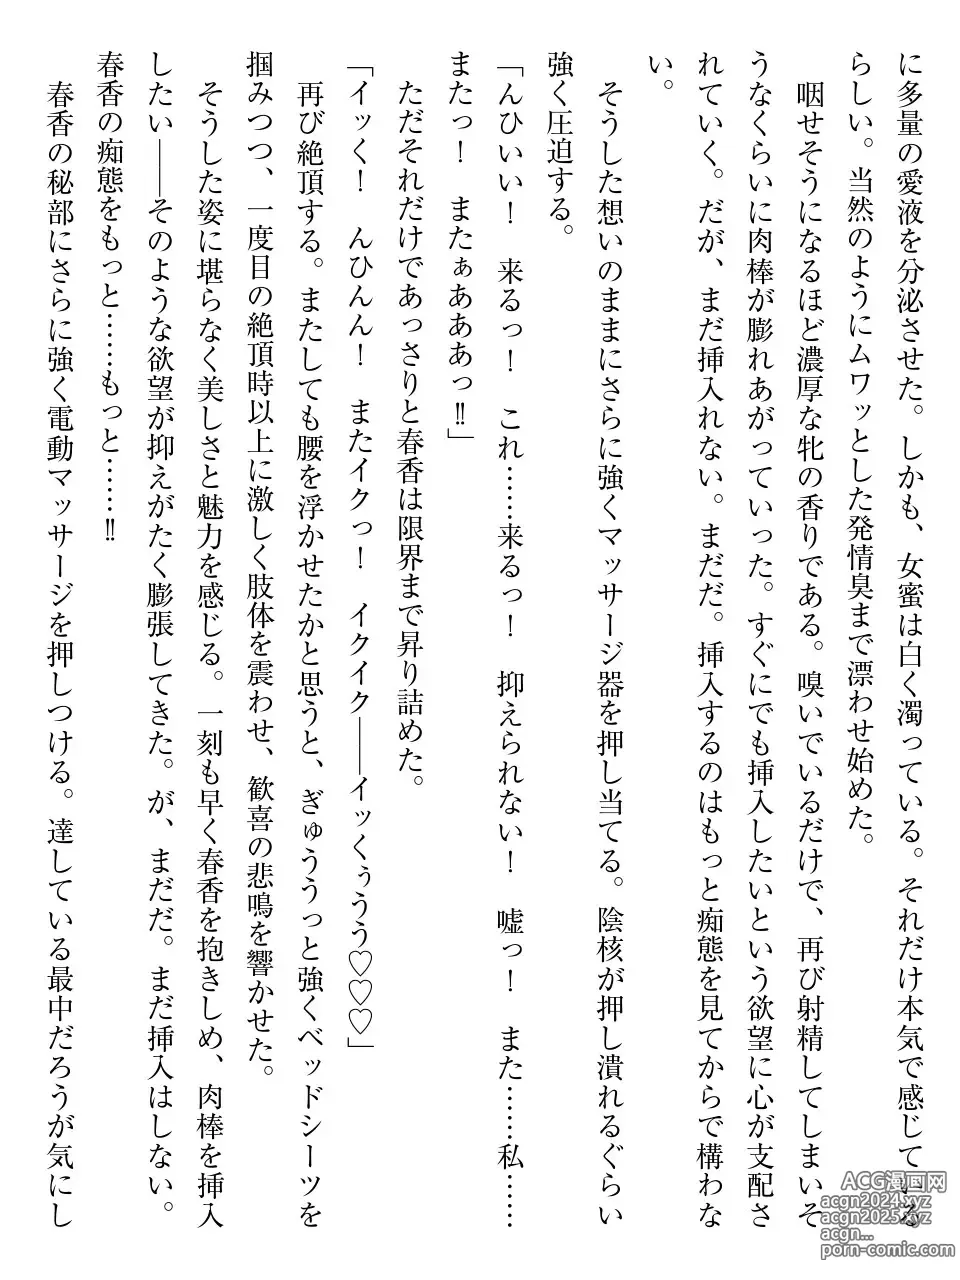 に多量の愛液を分泌させた。しかも、女蜜は白く濁っている。それだけ本気で感じている
らしい。当然のようにムワッとした発情臭まで漂わせ始めた。
咽せそうになるほど濃厚な牝の香りである。嗅いでいるだけで、再び射精してしまいそ
うなくらいに肉棒が膨れあがっていった。すぐにでも挿入したいという欲望に心が支配さ
れていく。だが、まだ挿入れない。まだだ。挿入するのはもっと痴態を見てからで構わな
い。
そうした想いのままにさらに強くマッサージ器を押し当てる。陰核が押し潰れるぐらい
強く圧迫する。
「んひいい！　来るっ！　これ……来るっ！　抑えられない！　嘘っ！　また……私……
またっ！　またぁあああっ‼」
ただそれだけであっさりと春香は限界まで昇り詰めた。
「イッく！　んひんん！　またイクっ！　イクイク――イッくぅうう♡♡♡」
再び絶頂する。またしても腰を浮かせたかと思うと、ぎゅううっと強くベッドシーツを
掴みつつ、一度目の絶頂時以上に激しく肢体を震わせ、歓喜の悲鳴を響かせた。
そうした姿に堪らなく美しさと魅力を感じる。一刻も早く春香を抱きしめ、肉棒を挿入
したい――そのような欲望が抑えがたく膨張してきた。が、まだだ。まだ挿入はしない。
春香の痴態をもっと……もっと……‼
春香の秘部にさらに強く電動マッサージを押しつける。達している最中だろうが気にし
ACG漫画网
acgn2024.xyz
acgn2025.xyz
acgn...
porn-comic.com